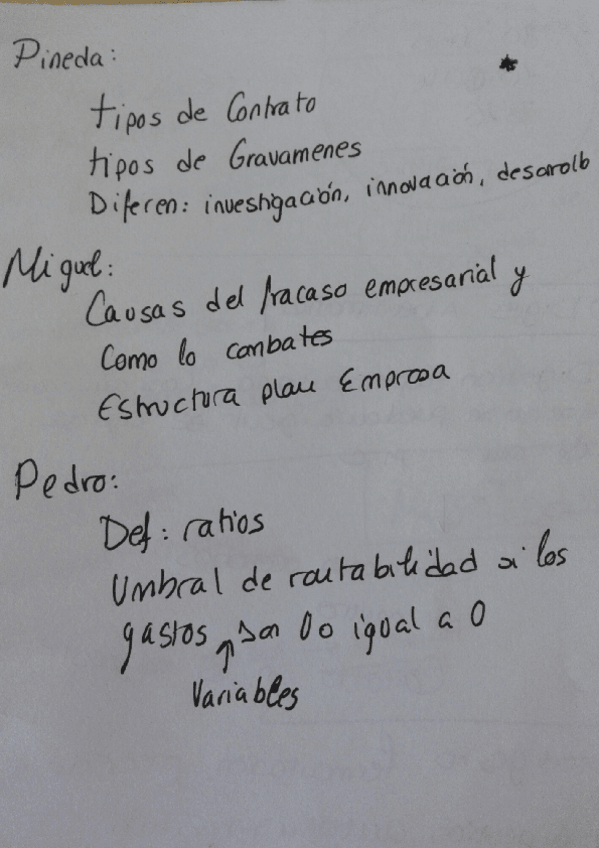 Pineda:
*
tipos de Contrato
tipos de Gravamenes
Diferen: investigación, innovación, desarollo
Miguel:
Causas del fracaso empresarial y
Como lo combates
Estructura plan Empresa
Pedro:
Def: ratios
Umbral de rentabilidad si los
gastos son 0 o igual a 0
Variables